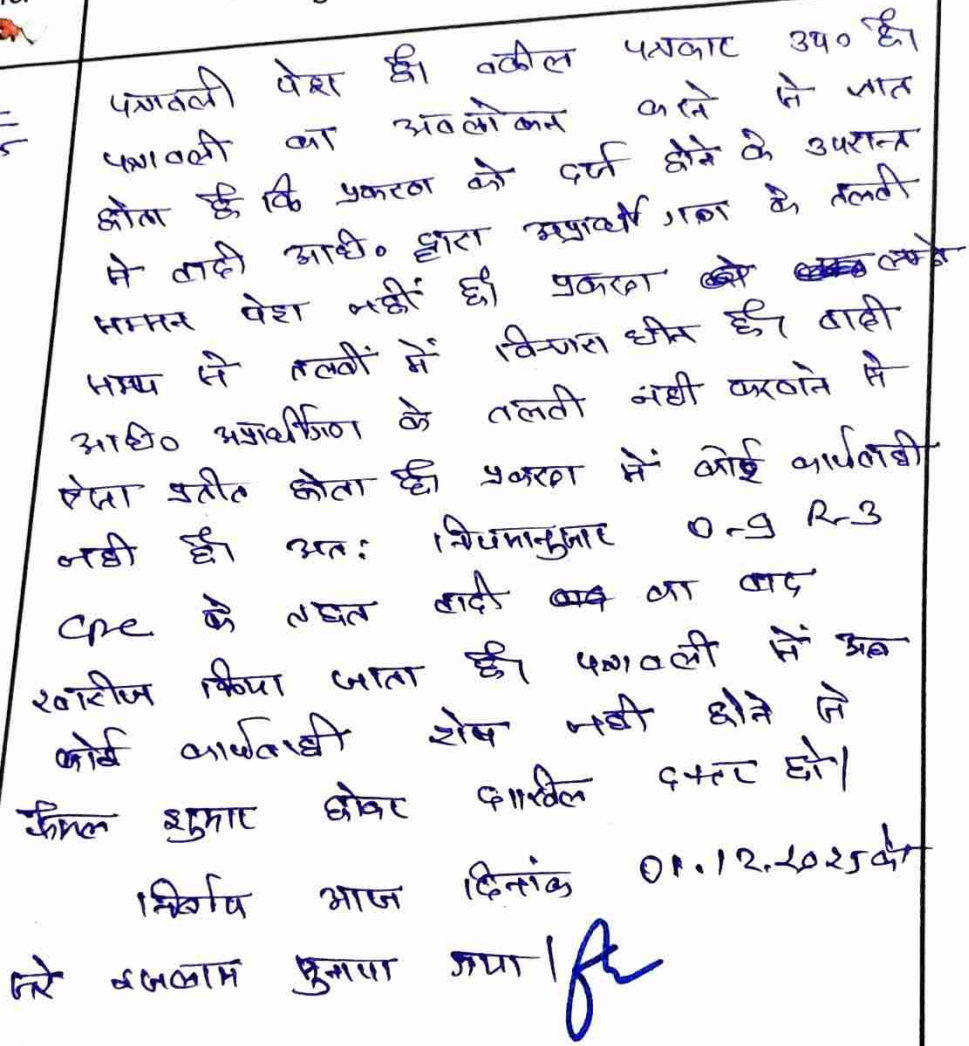 पत्रावली पेश है। वकील पत्रकार उप० है।
पत्रावली का अवलोकन करने से ज्ञात
होता है कि प्रकरण को दर्ज होने के उपरान्त
से वादी आधी० द्वारा अप्रार्थी गण के तलवी
सम्मन पेश नहीं है। प्रकरण लम्बे
समय से तलवीं में विचाराधीन है। वादी
आधी० अप्रार्थीगण के तलवी नही करवाने से
ऐसा प्रतीत होता है। प्रकरण में कोई कार्यवाही
नही है। अत: नियमानुसार O-9 R-3
CPC के तहत वादी का वाद
खारीज किया जाता है। पत्रावली में अब
कोई कार्यवाही शेष नही होने से
फैसल शुमार होकर दाखिल दफ्तर हो।
निर्णय आज दिनांक 01.12.2025 को
सरे इजलास सुनाया गया।